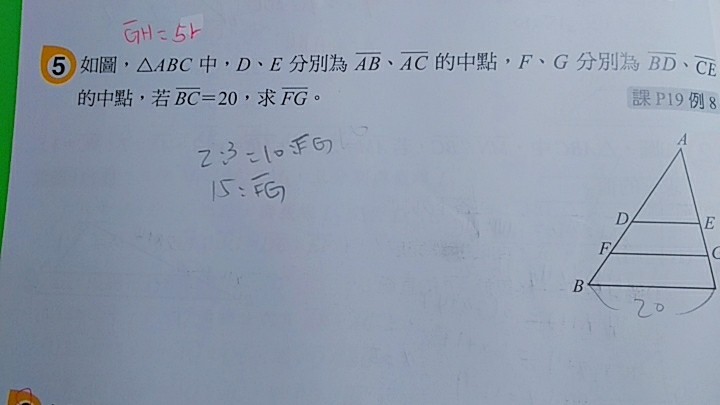 GH=5r
5 如圖,△ABC 中,D、E 分別為 AB、AC 的中點,F、G 分別為 BD、CE
的中點,若 BC=20,求 FG。
課 P19 例 8
2:3=10:FG
15=FG
A
D
E
F
B
20